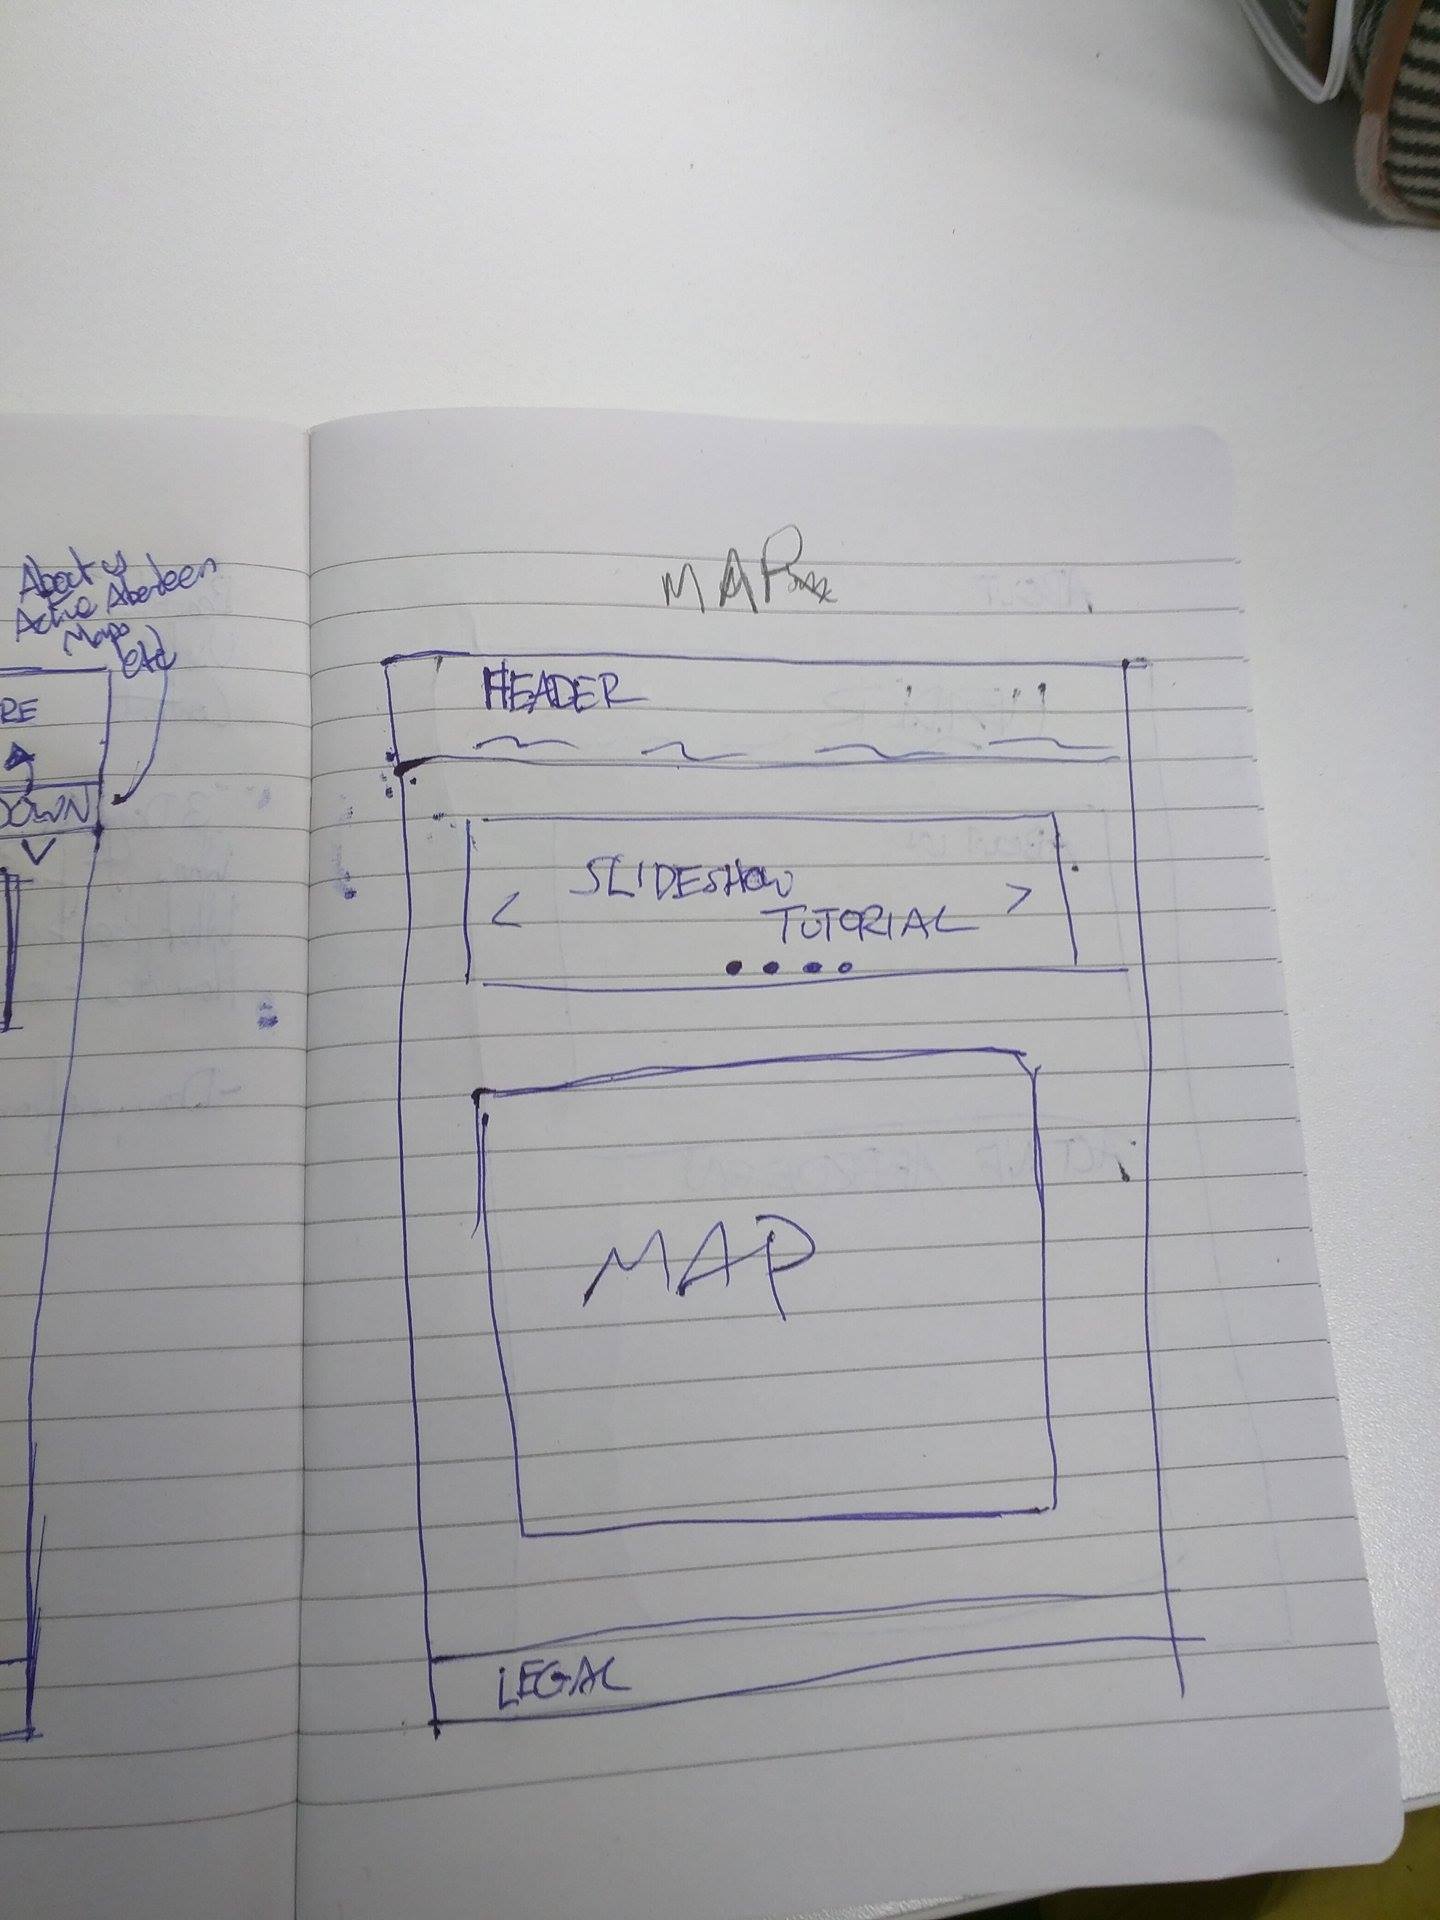 About us
Active Aberdeen
Maps
etc
RE
DOWN
MAP
HEADER
< SLIDESHOW >
TUTORIAL
MAP
LEGAL